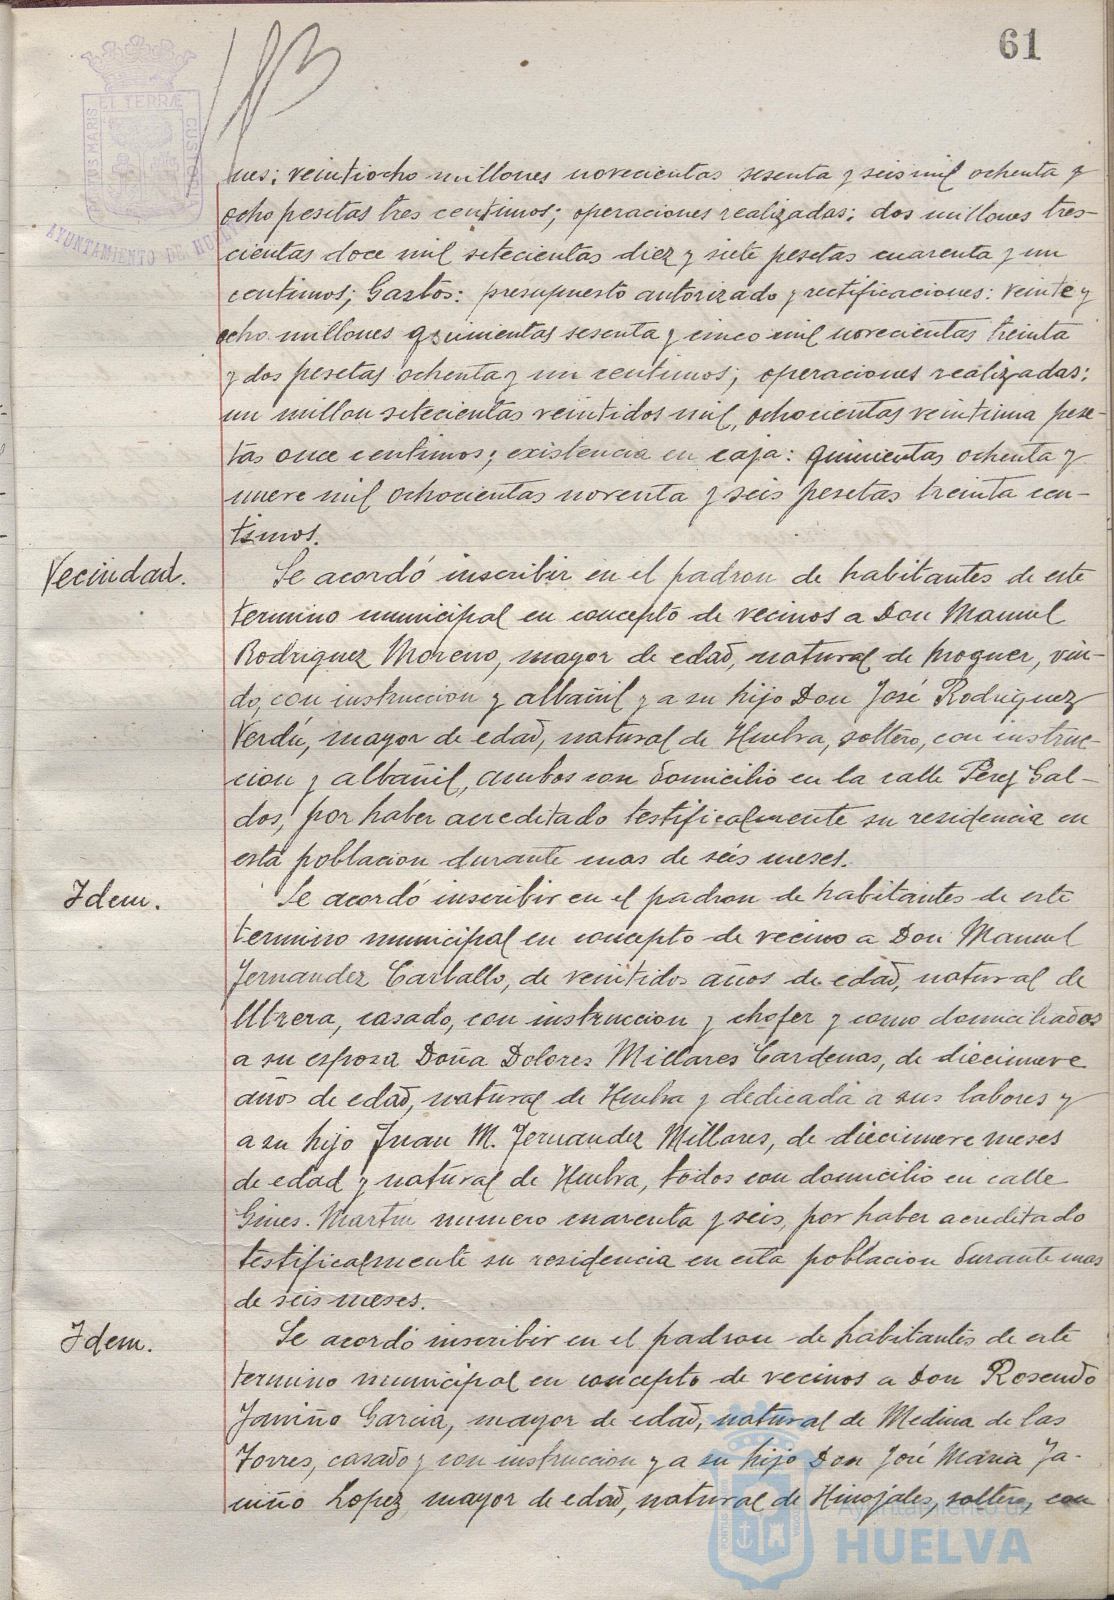 61
nes; veintiocho millones novecientas sesenta y seis mil ochenta y
ocho pesetas tres centimos; operaciones realizadas: dos millones tres-
cientas doce mil setecientas diez y siete pesetas cuarenta y un
centimos; Gastos: presupuesto autorizado y rectificaciones: veinte y
ocho millones quinientas sesenta y cinco mil novecientas treinta
y dos pesetas ochenta y un centimos; operaciones realizadas:
un millon setecientas veintidos mil, ochocientas veintiuna pese-
tas once centimos; existencia en caja: quinientas ochenta y
nueve mil ochocientas noventa y seis pesetas treinta cen-
timos.
Vecindad.
Se acordó inscribir en el padron de habitantes de este
termino municipal en concepto de vecinos a Don Manuel
Rodriguez Moreno, mayor de edad, natural de Moguer, viu-
do, con instruccion y albañil y a su hijo Don José Rodriguez
Verdú, mayor de edad, natural de Huelva, soltero, con instruc-
cion y albañil, ambos con domicilio en la calle Perez Gal-
dos, por haber acreditado testificalmente su residencia en
esta poblacion durante mas de seis meses.
Idem.
Se acordó inscribir en el padron de habitantes de este
termino municipal en concepto de vecino a Don Manuel
Fernandez Carballo, de veintidos años de edad, natural de
Utrera, casado, con instruccion y chofer y como domiciliados
a su esposa Doña Dolores Millares Cardenas, de diecinueve
años de edad, natural de Huelva y dedicada a sus labores y
a su hijo Juan M. Fernandez Millares, de diecinueve meses
de edad y natural de Huelva, todos con domicilio en calle
Gines Martin numero cuarenta y seis, por haber acreditado
testificalmente su residencia en esta poblacion durante mas
de seis meses.
Idem.
Se acordó inscribir en el padron de habitantes de este
termino municipal en concepto de vecinos a Don Rosendo
Janiño Garcia, mayor de edad, natural de Medina de las
Torres, casado y con instruccion y a su hijo Don José Maria Ja-
niño Lopez mayor de edad, natural de Hinojales, soltero, con
AYUNTAMIENTO DE HUELVA
Ayuntamiento de
HUELVA